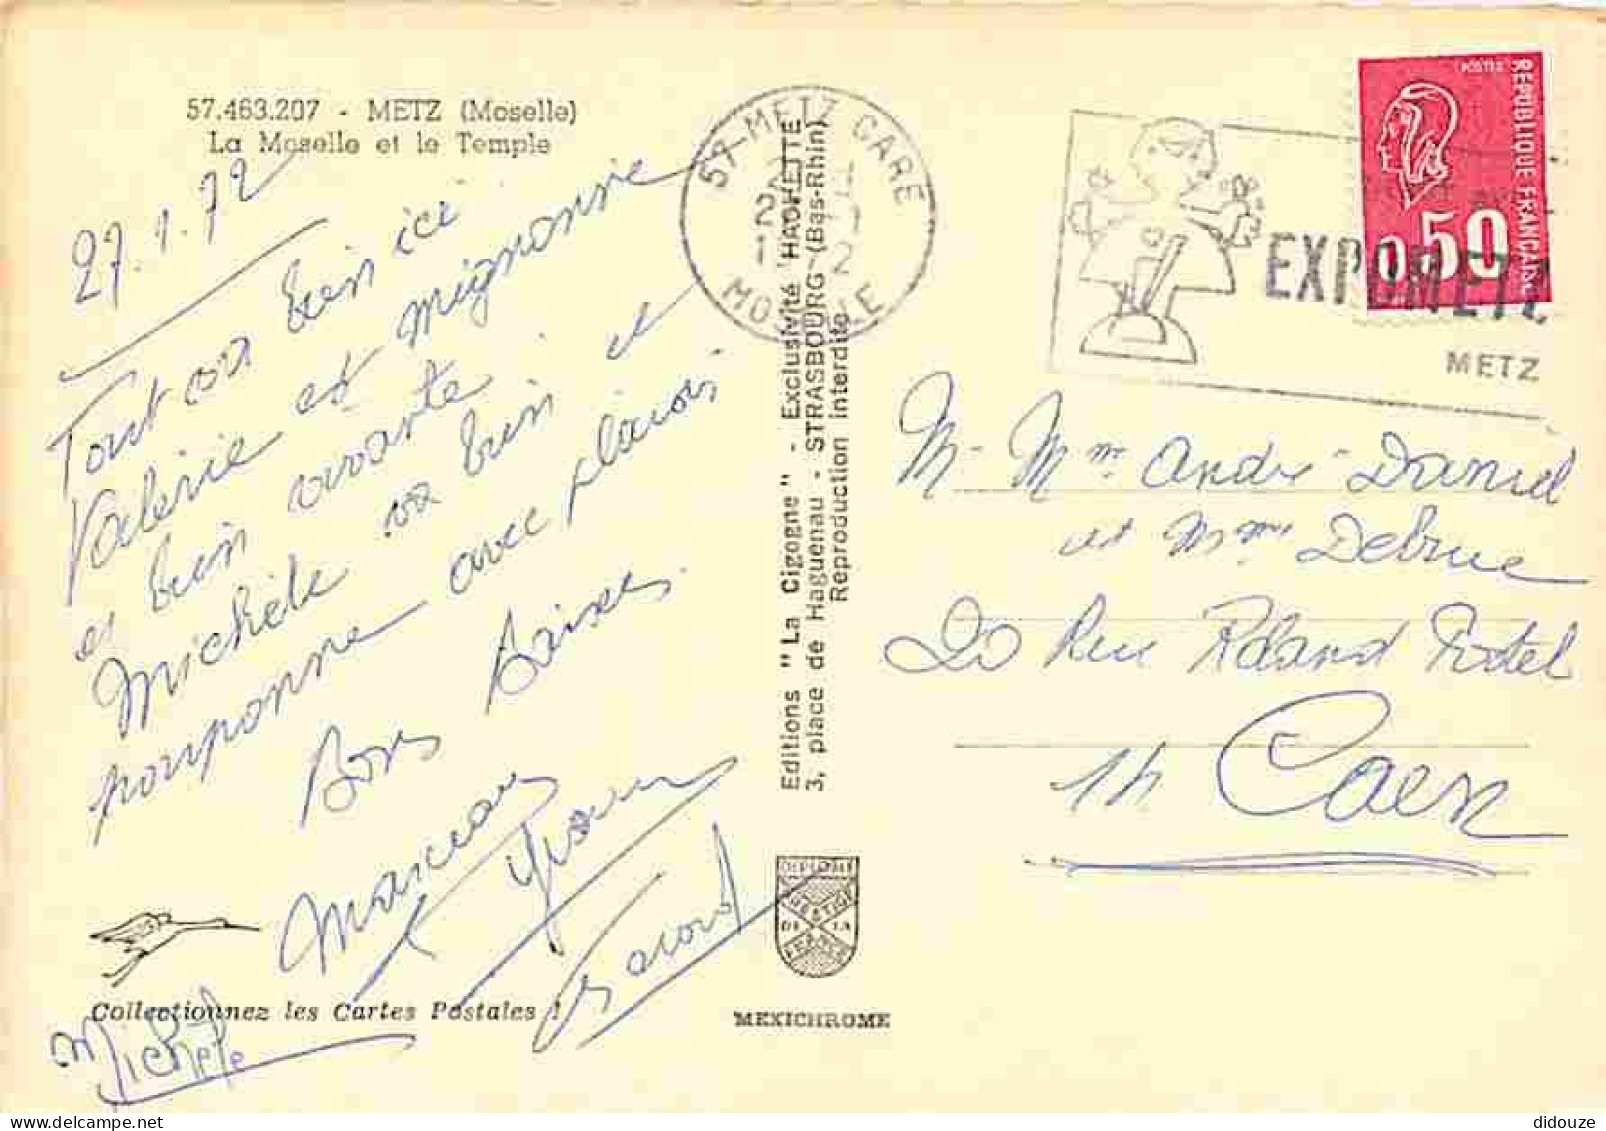 57.463.207 - METZ (Moselle)
La Moselle et le Temple
27.1.72
Tout va bien ici
Valérie est mignonne
et bien vivante
Michèle va bien et
pouponne avec plaisir
Bons Baisers
Marceau
Yvonne
Gérard
Michèle
Collectionnez les Cartes Postales !
Editions "La Cigogne" - Exclusivité HACHETTE
3, place de Haguenau - STRASBOURG (Bas-Rhin)
Reproduction interdite
DE LA
FRANCE
MEXICHROME
57-METZ GARE
MOSELLE
EXPOMETZ
METZ
POSTES
REPUBLIQUE FRANÇAISE
0,50
M. Mme André Daniel
et Mme Debrue
20 Rue Roland
14 Caen
didouze